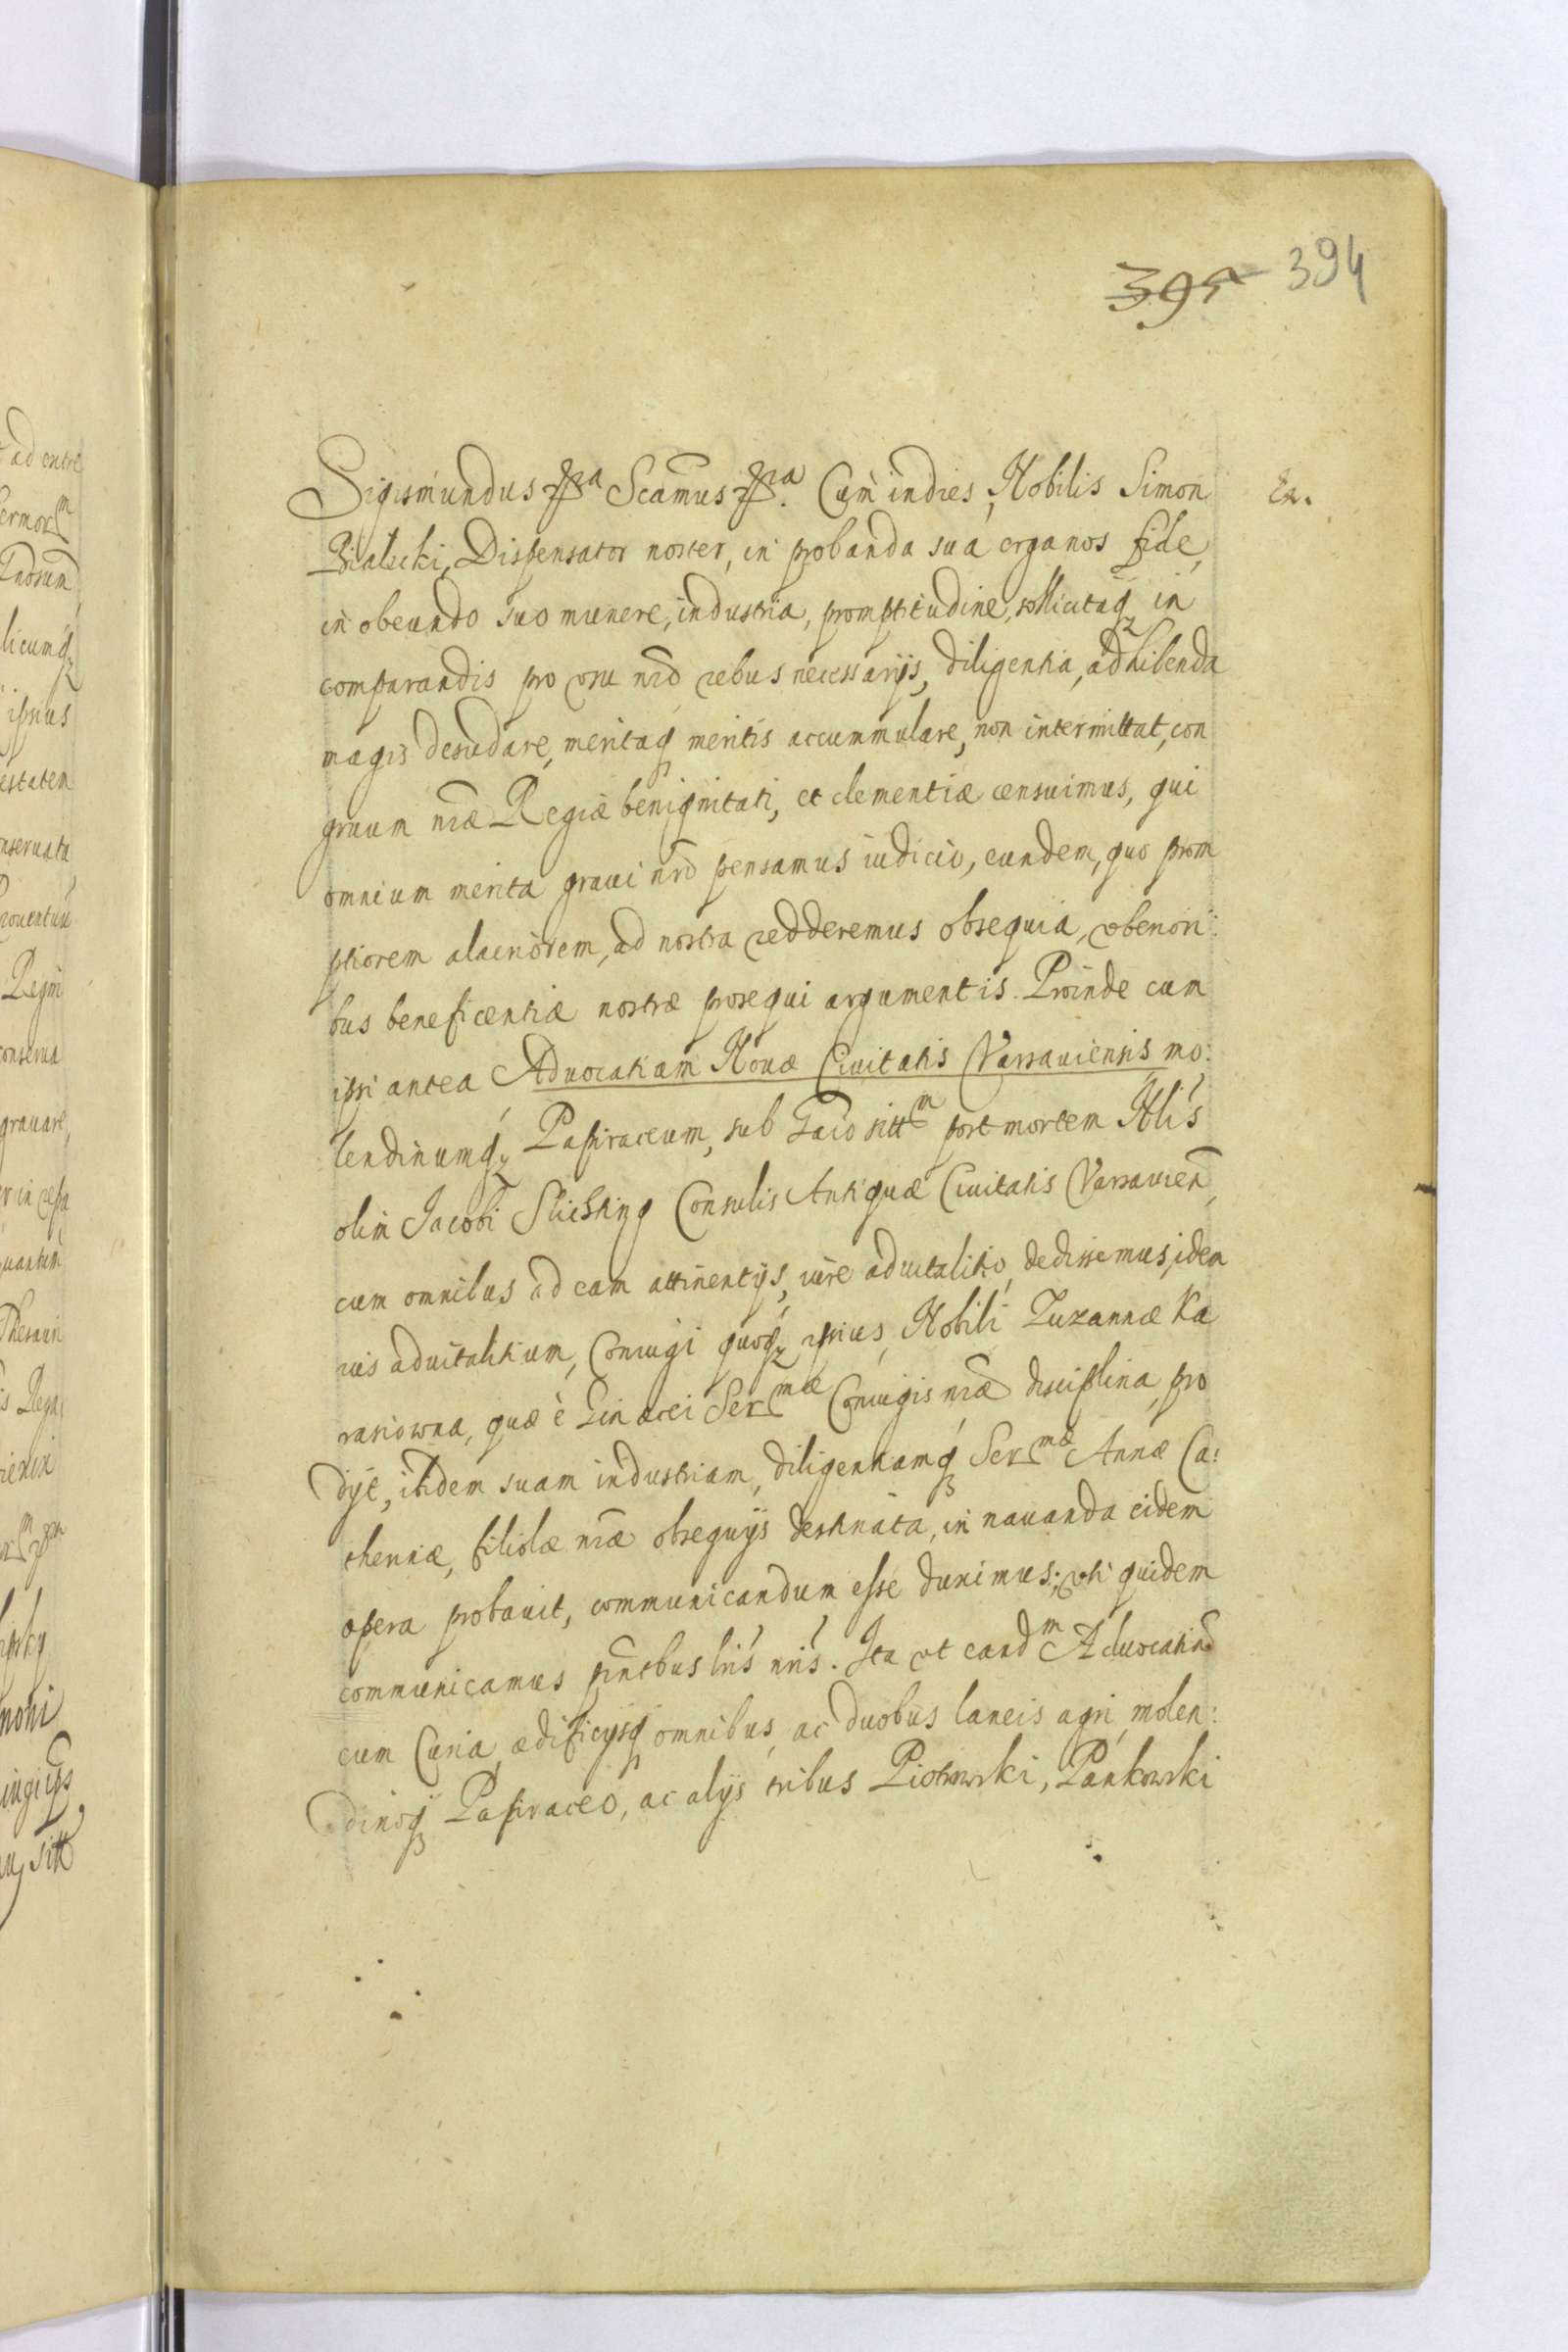 395 394
Sigismundus etca Scamus etca. Cum indies, Nobilis Simon Ex.
Bialucki, Dispensator noster, in probanda sua erga nos fide,
in obeundo suo munere, industria, promptitudine, sollicitaq₃ in
comparandis pro usu nr̃o rebus necessarijs, diligentia, adhibenda
magis desudare, meritaq₃ meritis accummulare, non intermittat, con
gruum nr̃æ Regiæ benignitati, et clementiæ censuimus, qui
omnium merita graui nr̃o pensamus iudicio, eundem, quo prom
ptiorem alacriorem, ad nostra redderemus obsequia, vberiori:
bus beneficentiæ nostræ prosequi argumentis. Proinde cum
ipsi antea Aduocatiam Nouæ Ciuitatis Varsauiensis mo:
lendinumq₃ Papiraceum, sub sitt̃m post mortem Nblis
olim Jacobi Conculis Antiquæ Ciuitatis Varsauien̄,
cum omnibus ad eam attinentijs, iure aduitalitio, dedissemus, idem
ius aduitalitium, Coniugi quoq₃ ipsius, Nobili Zuzannæ Ka
rasiowna, quæ è Ginæcei Serm̃æ Coniugis nr̃æ disciplina, pro
dijt, itidem suam industriam, diligentiamq₃ Serm̃æ Annæ Ca:
therinæ, filiolæ nr̃æ obsequijs destinata, in nauanda eidem
opera probauit, communicandum esse duximus; vti quidem
communicamus pñtibus lrĩs nrĩs. Ita vt eandm̃ Aduocatiã
cum Curia ædificijsq₃ omnibus, ac duobus laneis agri, molen:
dinoq₃ Papiraceo, ac alijs tribus Piotrowski, Pankowski